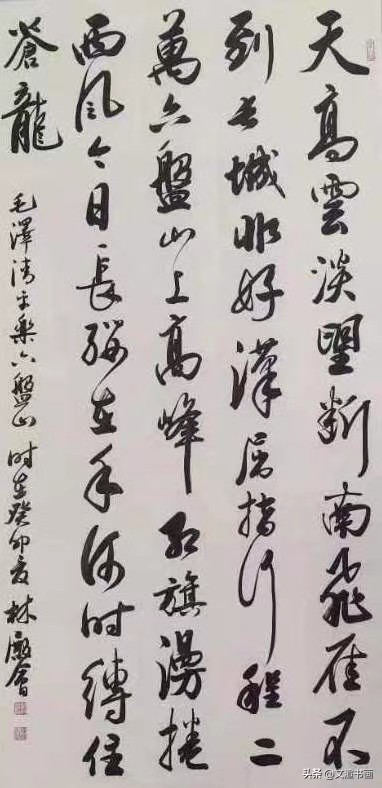 天高雲淡望断南飛雁不
到长城非好漢屈指行程二
萬六盤山上高峰紅旗漫捲
西風今日長纓在手何时縛住
蒼龍
毛澤清平樂六盤山 时在癸卯夏 林會
头条